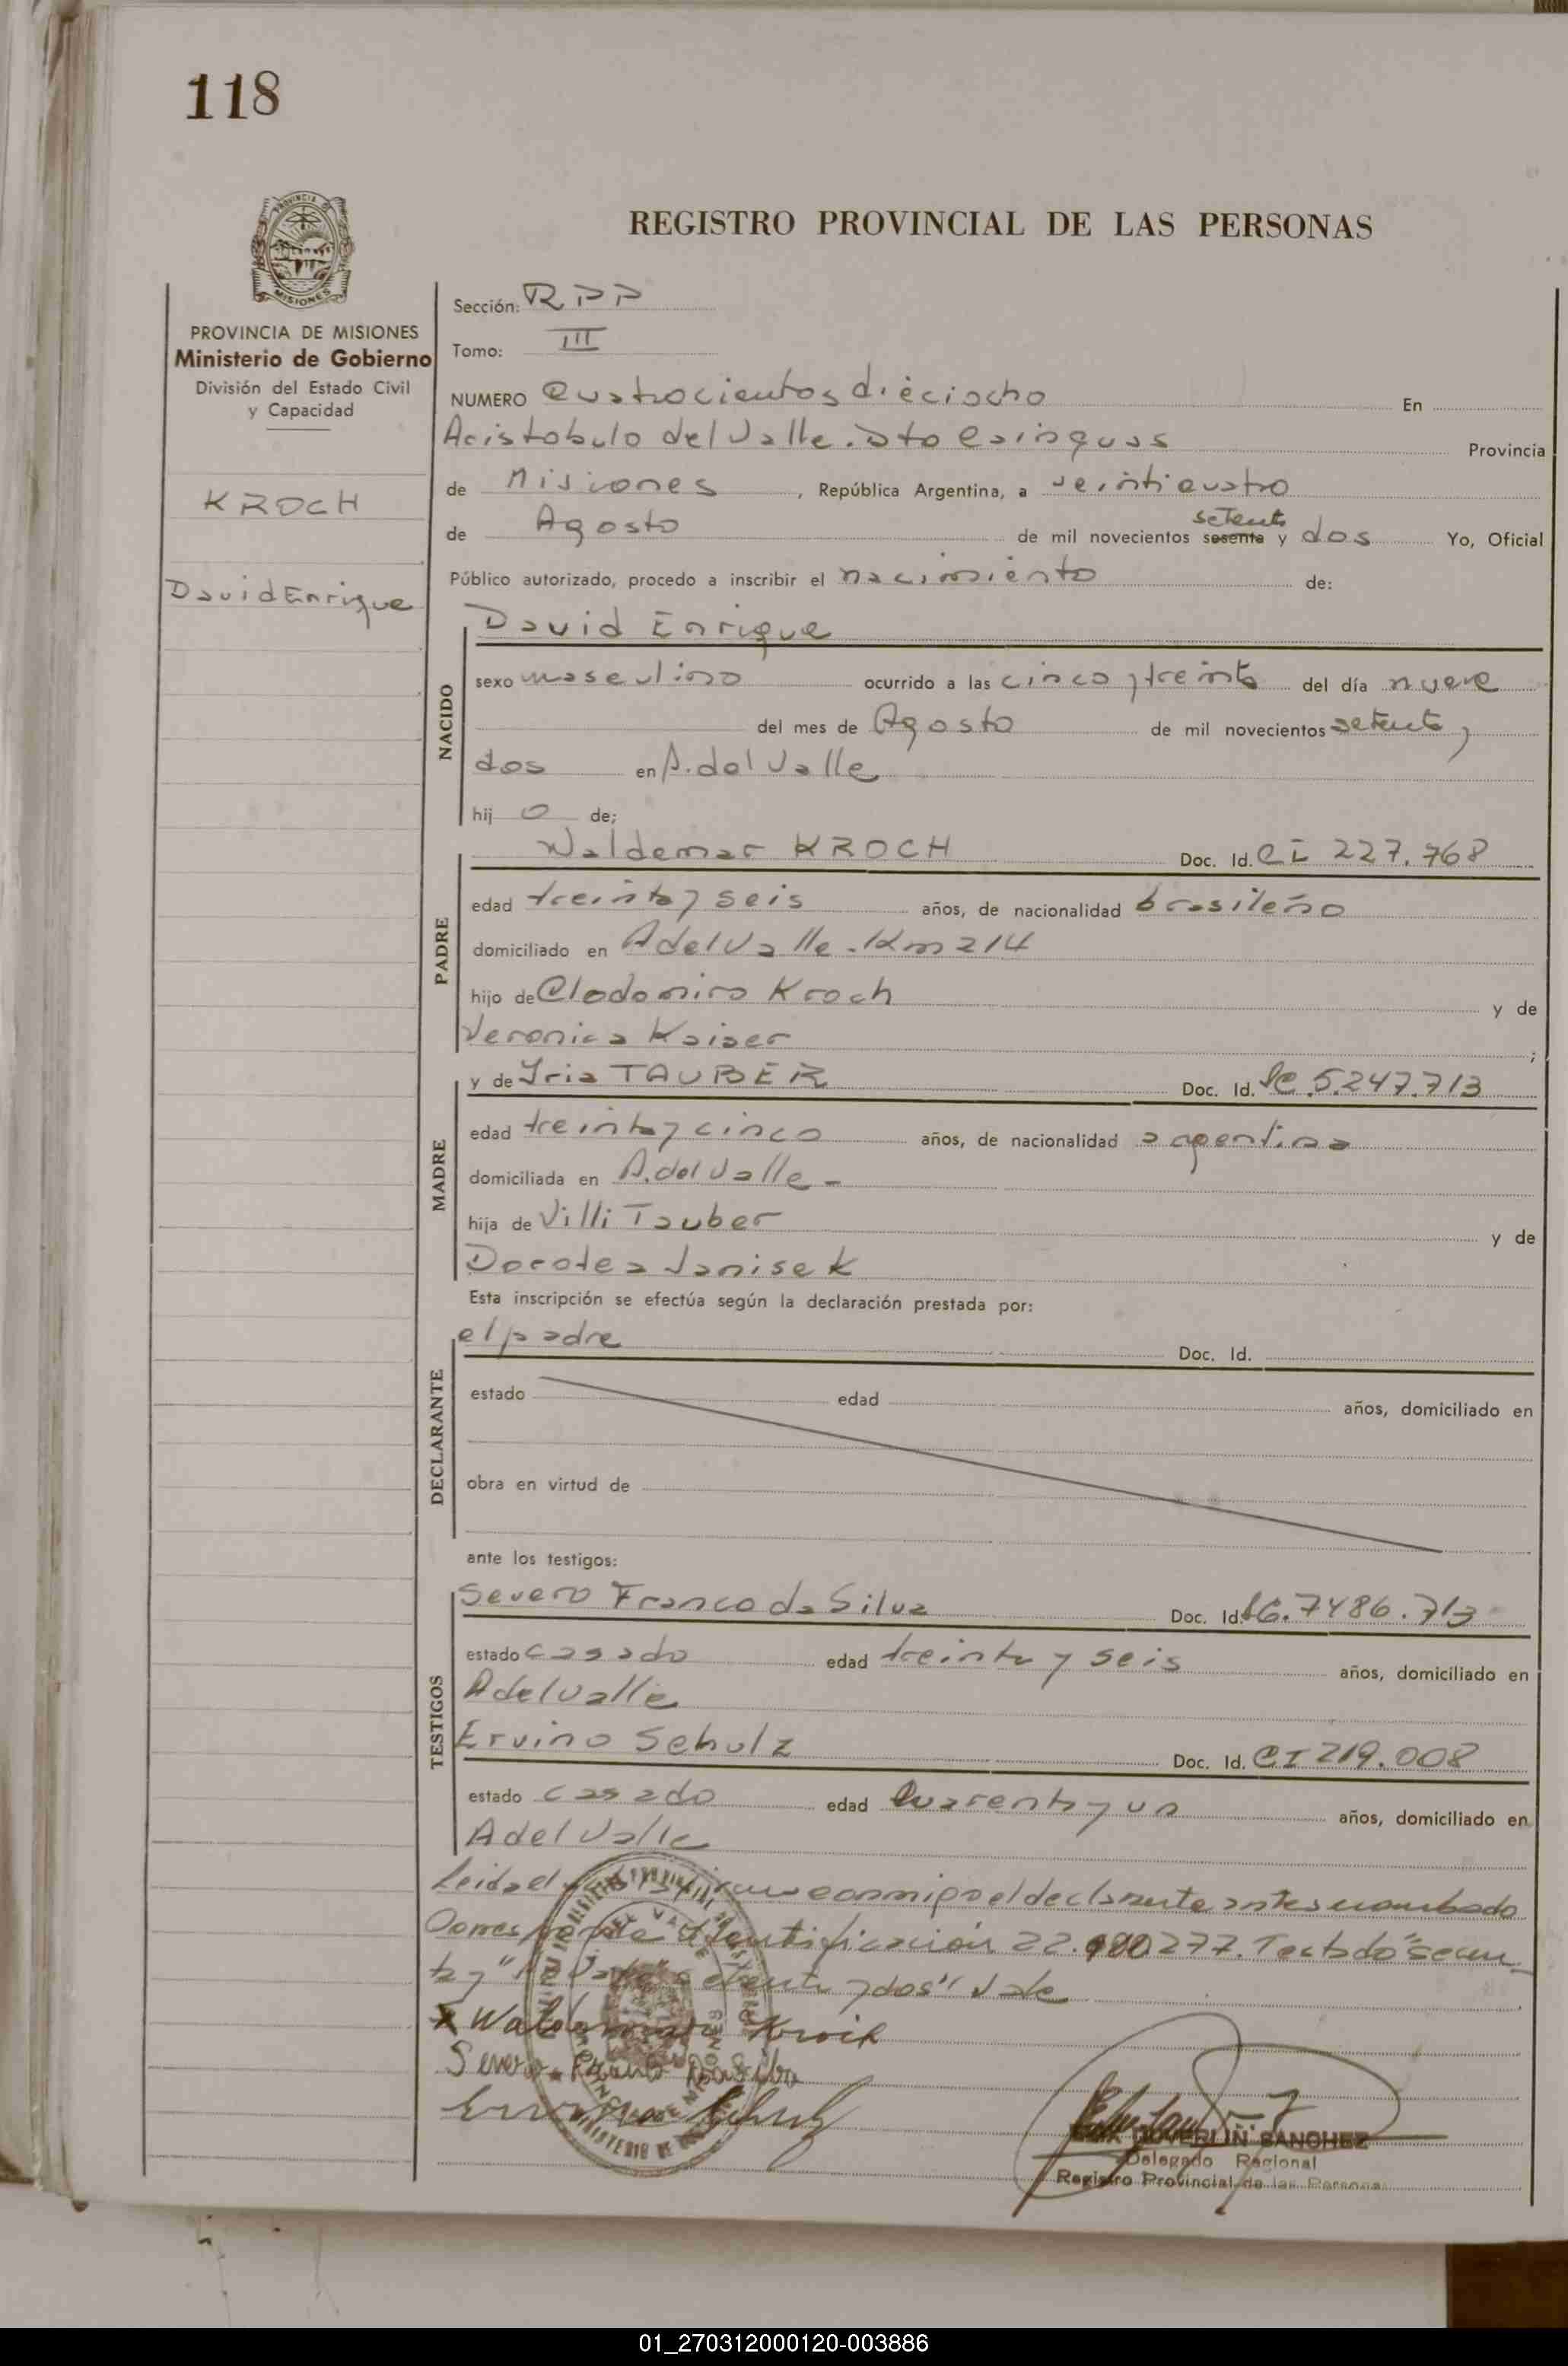 118
REGISTRO PROVINCIAL DE LAS PERSONAS
MISIONES
PROVINCIA DE MISIONES
Ministerio de Gobierno
División del Estado Civil
y Capacidad
KROCH
David Enrique
Sección: RPP
Tomo: III
NUMERO Cuatrocientos dieciocho En
Aristobulo del Valle. Dto Cainguas Provincia
de Misiones, República Argentina, a veinticuatro
de Agosto de mil novecientos sesenta setenta y dos Yo, Oficial
Público autorizado, procedo a inscribir el nacimiento de:
NACIDO
David Enrique
sexo masculino ocurrido a las cinco y treinta del día nueve
del mes de Agosto de mil novecientos setenta y
dos en A. del Valle
hij o de;
PADRE
Waldemar KROCH Doc. Id. CI 227.768
edad treinta y seis años, de nacionalidad brasileño
domiciliado en A del Valle - Km 214
hijo de Clodomiro Kroch y de
Veronica Kaiser ;
MADRE
y de Iria TAUBER Doc. Id. LC 5.247.713
edad treinta y cinco años, de nacionalidad argentina
domiciliada en A. del Valle -
hija de Villi Tauber y de
Dorotea Janisek
Esta inscripción se efectúa según la declaración prestada por:
DECLARANTE
el padre Doc. Id.
estado edad años, domiciliado en
obra en virtud de
ante los testigos:
TESTIGOS
Severo Franco da Silva Doc. Id. 7486.713
estado casado edad treinta y seis años, domiciliado en
A del Valle
Ervino Schulz Doc. Id. CI 219.008
estado casado edad cuarenta y un años, domiciliado en
A del Valle
Leida el conmigo el declarante antes nombrado
Corresponde identificación 22. 277. Testado "sesen
ta y" setenta y dos" Vale
x Waldemar Kroch
Severo Franco Da Silva
Ervino Schulz
SANCHEZ
Delegado Regional
Registro Provincial de las Personas
01_270312000120-003886